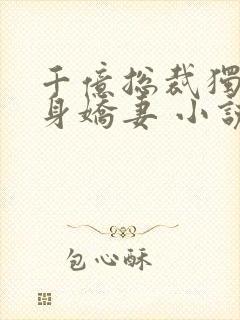 千億總裁獨
身嬌妻 小說
包心酥